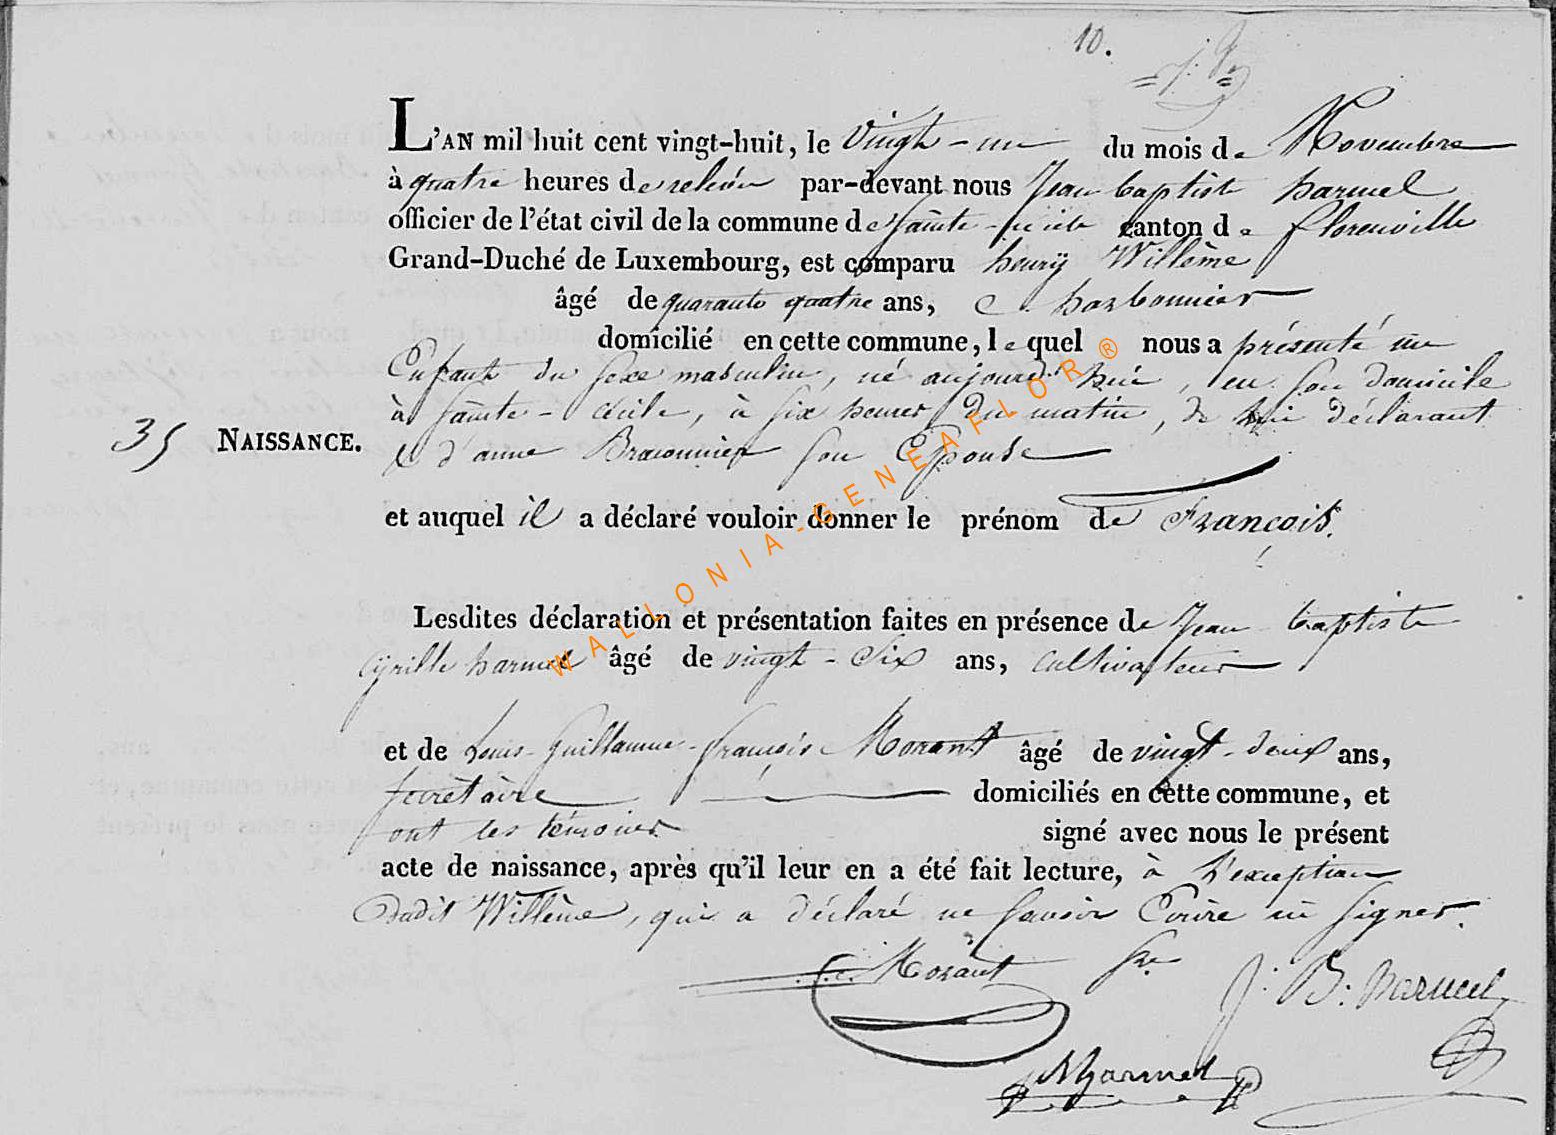 10.
L'AN mil huit cent vingt-huit, le Vingt-un du mois de Novembre
à quatre heures de relevée par-devant nous Jean baptiste harmel
officier de l'état civil de la commune de Sainte-Cécile canton de florenville
Grand-Duché de Luxembourg, est comparu henry Willème
âgé de quarante quatre ans, charbonnier
domicilié en cette commune, lequel nous a présenté un
Enfant du sexe masculin, né aujourd'hui, en son domicile
à Sainte-Cécile, à six heures du matin, de lui déclarant
35 NAISSANCE.
& d'anne Braconnier son Epouse
et auquel il a déclaré vouloir donner le prénom de François.
Lesdites déclaration et présentation faites en présence de Jean baptiste
cyrille harmel âgé de vingt-six ans, cultivateur
et de Louis-Guillaume-françois Morant âgé de vingt-deux ans,
secrétaire domiciliés en cette commune, et
ont les témoins signé avec nous le présent
acte de naissance, après qu'il leur en a été fait lecture, à l'exception
dudit Willème, qui a déclaré ne savoir Ecrire ni signer.
Morant
J: B: harmel
harmel
WALLONIA-GENEAFLOR®